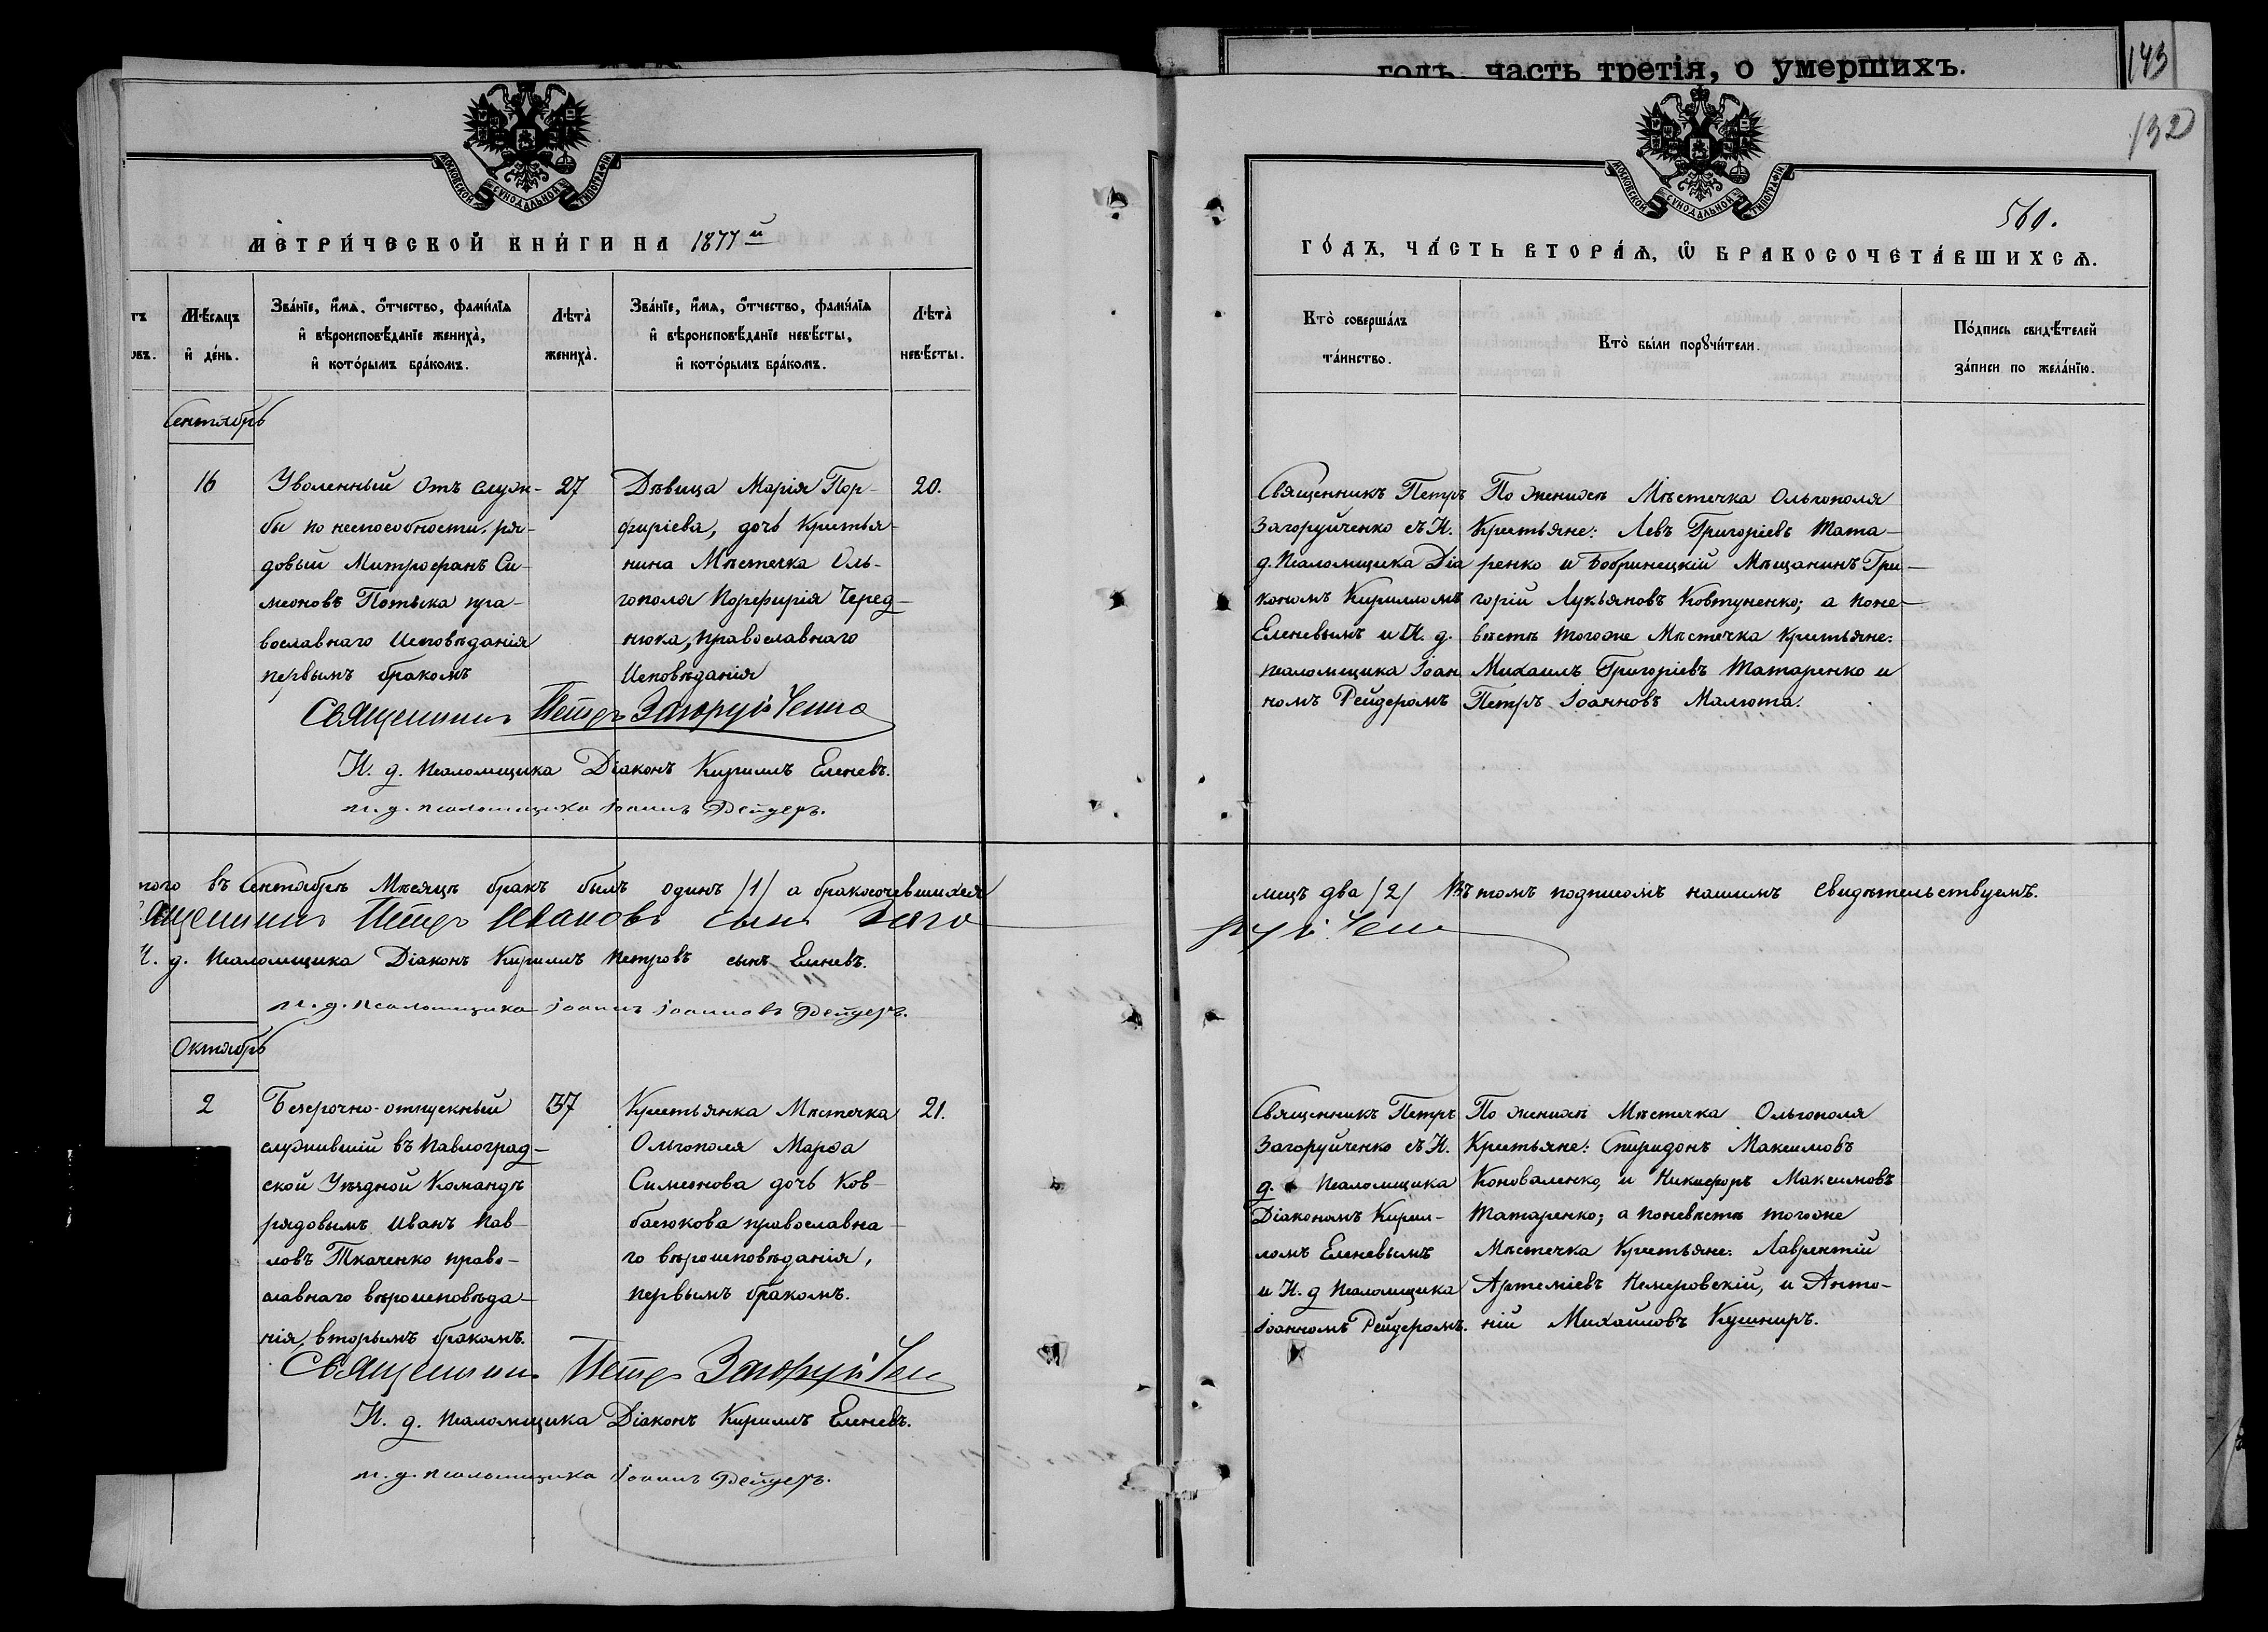 годъ, часть третія, о умершихъ.
143
132
560.
МОСКОВСКОЙ СѴНОДАЛЬНОЙ ТИПОГРАФІИ
МЕТРИ́ЧЕСКОЙ КНИ́ГИ НА 1877й
МОСКОВСКОЙ СѴНОДАЛЬНОЙ ТИПОГРАФІИ
ГО́ДЪ, ЧА́СТЬ ВТОРА́Ѧ, Ѡ БРАКОСОЧЕТА́ВШИХСѦ.
Мѣ́сяцъ
и де́нь.
Зва́нїе, и́мѧ, о́тчество, фами́лїѧ
и вѣроисповѣ́данїе жениха̀,
и кото́рымъ бра́комъ.
Лѣ̀та
жениха̀.
Зва́нїе, и́мѧ, о́тчество, фами́лїѧ
и вѣроисповѣ́данїе невѣ́сты,
и кото́рымъ бра́комъ.
Лѣ̀та
невѣ́сты.
Кто̀ соверша́лъ
та́инство.
Кто̀ бы́ли порꙋчи́тели.
По́дпись свидѣ́телей
за́писи по жела́нїю.
Сентябрь
16
Уволенный отъ служ-
бы по неспособности, ря-
довый Митрофанъ Си-
меоновъ Потѣка пра-
вославнаго Исповѣданія
первымъ бракомъ
27
Дѣвица Марія Пор-
фиріева, дочь Крестья-
нина Мѣстечка Оль-
гополя Порфирія Черед-
нюка, православнаго
Исповѣданія
20.
Священникъ Петръ Загоруйченко
И. д. псаломщика Діаконъ Кириллъ Еленевъ.
и. д. псаломщика Іоаннъ Рейдеръ.
Священникъ Петръ
Загоруйченко съ И.
д. Псаломщика Діа
кономъ Кирилломъ
Еленевымъ и И. д.
псаломщика Іоан
номъ Рейдеромъ
По женихѣ Мѣстечка Ольгополя
Крестьяне: Левъ Григоріевъ Тата-
ренко и Бобринецкій Мѣщанинъ Гри-
горій Лукьяновъ Ковтуненко; а поне-
вѣстѣ тогоже Мѣстечка Крестьяне:
Михаилъ Григоріевъ Татаренко и
Петръ Іоанновъ Малюта.
ного въ Сентябрѣ Мѣсяцѣ бракъ былъ одинъ /1/ а бракосочевшихся
лицъ два /2/ Въ томъ подписомъ нашимъ Свидѣтельствуемъ.
ященникъ Петръ Ивановъ сынъ Заго
руйченко
И. д. Псаломщика Діаконъ Кириллъ Петровъ сынъ Еленевъ.
и. д. псаломщика Іоаннъ Іоанновъ Рейдеръ.
Октябрь
2
Безсрочно-отпускный
служившій въ Павлоград-
ской Уѣздной Командѣ
рядовымъ Иванъ Пав-
ловъ Ткаченко право-
славнаго вѣроисповѣда-
нія, вторымъ бракомъ.
37
Крестьянка Мѣстечка
Ольгополя Марѳа
Симеонова дочь Ков-
басюкова православна-
го вѣроисповѣданія,
первымъ бракомъ.
21.
Священникъ Петръ Загоруйченко
И. д. псаломщика Діаконъ Кириллъ Еленевъ.
и. д. псаломщика Іоаннъ Рейдеръ.
Священникъ Петръ
Загоруйченко съ И.
д. Псаломщика
Діакономъ Кирил-
ломъ Еленевымъ
и И. д Псаломщика
Іоанномъ Рейдеромъ.
По женихѣ Мѣстечка Ольгополя
Крестьяне: Спиридонъ Максимовъ
Коноваленко, и Никифоръ Максимовъ
Татаренко; а поневѣстѣ тогоже
Мѣстечка Крестьяне: Лаврентій
Артеміевъ Немеровскій, и Анто-
ній Михаиловъ Кушниръ.